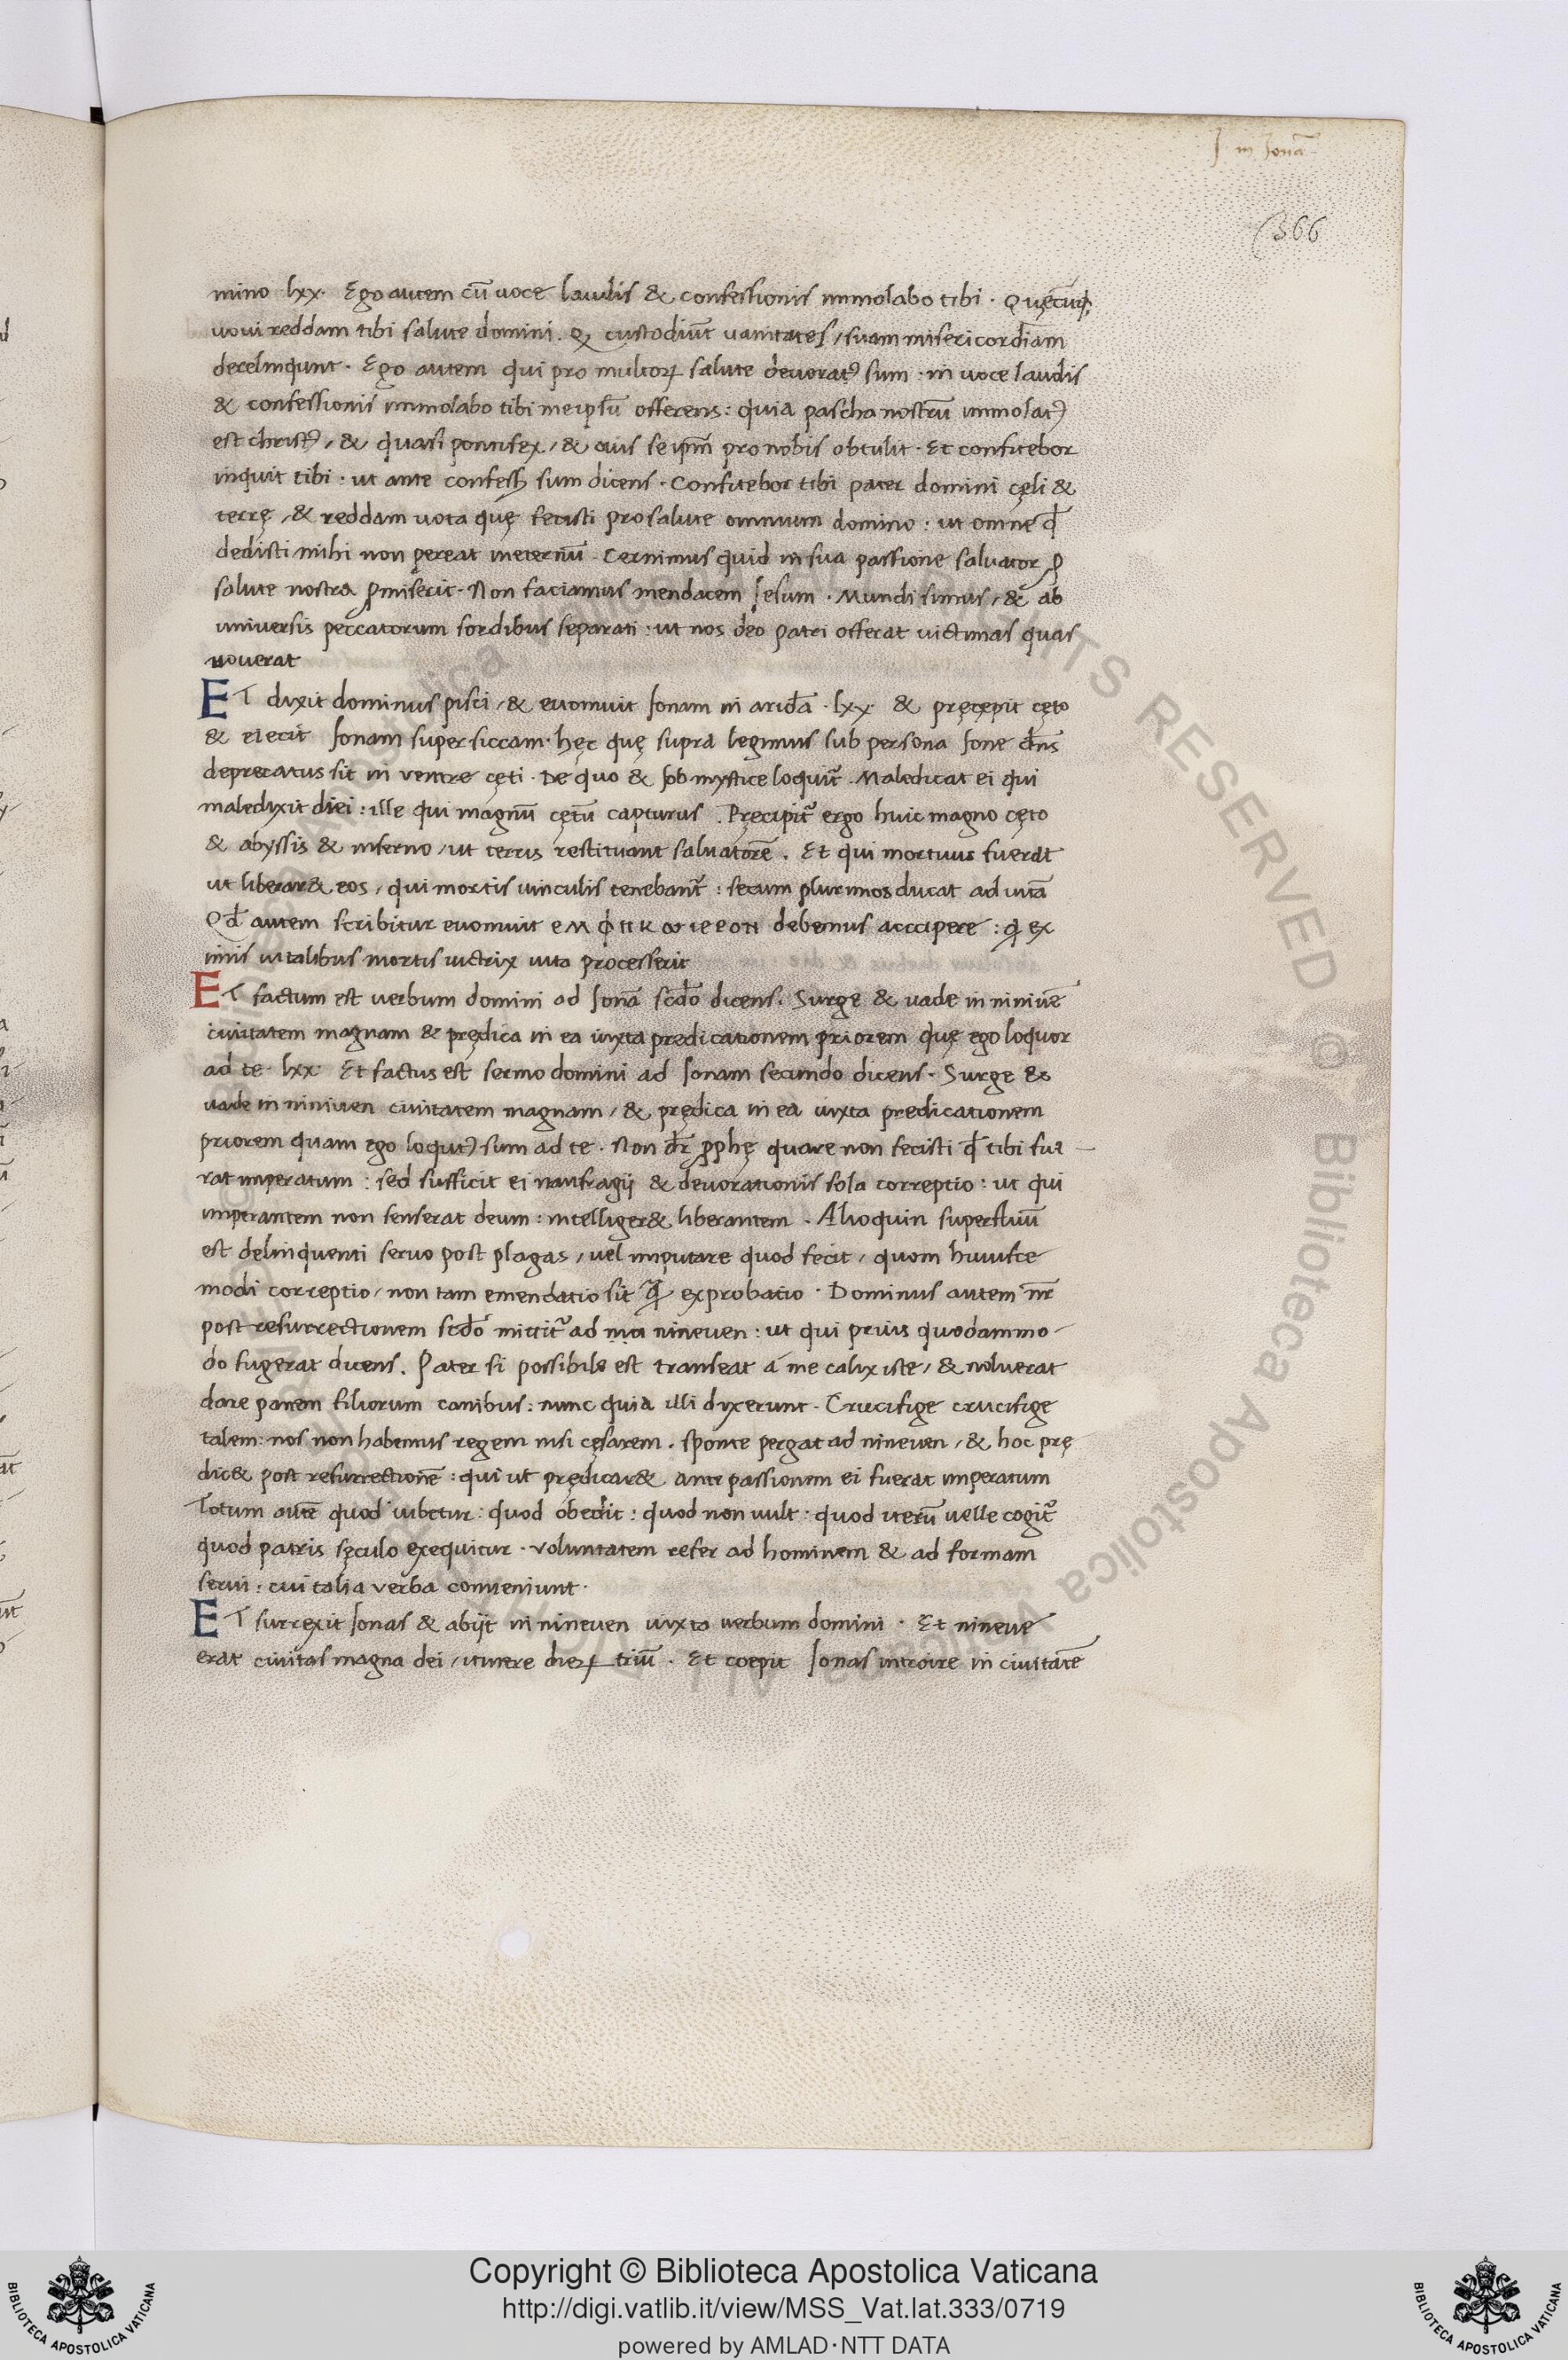 I in Jonā
366
mino lxx. Ego autem cū uoce laudis & confessionis immolabo tibi . Quęcūq;
uoui reddam tibi salute domini . Q custodiūt uanitates / suam misericordiam
derelinqunt . Ego autem qui pro multoꝝ salute deuoratꝰ sum . in uoce laudis
& confessionis immolabo tibi meipsū offerens : quia pascha nostrū immolatꝰ
est christꝰ / & quasi pontifex / & ouis se ipm̄ pro nobis obtulit . Et confitebor
inquit tibi . ut ante confessꝰ sum dicens . Confitebor tibi pater domini cęli &
terrę / & reddam uota quę fecisti pro salute omnium domino : ut omne qđ
dedisti mihi non pereat ineternū . Cernimus quid in sua passione saluator ꝓ
salute nostra ꝓmiserit . Non faciamus mendacem Iesum . Mundi simus / & ab
uniuersis peccatorum sordibus separati : ut nos deo patri offerat uictimas quas
uouerat
ET dixit dominus pisci / & euomuit Ionam in aridā . lxx. & pręcepit cęto
& eiecit Ionam super siccam . hęc quę supra legimus sub persona Ione dn̄s
deprecatus sit in ventre cęti . De quo & Iob mystice loquit᷑ . Maledicat ei qui
maledixit diei : ille qui magnū cętū capturus . Pręcipit᷑ ergo huic magno cęto
& abyssis & inferno / ut terris restituant saluatorē . Et qui mortuus fuerat
ut liberar& eos / qui mortis uinculis tenebant᷑ : secum plurimos ducat ad uitā
Qđ autem scribitur euomuit ΕΜΦΠΚΩΙΕΡΟΠ debemus acccipere : ꝙ ex
imis uitalibus mortis uictrix uita processerit
ET factum est verbum domini ad Ionā scđo dicens . Surge & uade in niniuē
ciuitatem magnam & prędica in ea iuxta predicationem priorem quę ego loquor
ad te . lxx. Et factus est sermo domini ad Ionam secundo dicens . Surge &
uade in niniuen ciuitatem magnam / & prędica in ea iuxta predicationem
priorem quam ego loqutꝰ sum ad te . Non dr̄ ꝓphę quare non fecisti qđ tibi fue
rat imperatum : sed sufficit ei naufragij & deuorationis sola correptio : ut qui
imperantem non senserat deum : intelliger& liberantem . Alioquin superfluū
est delinquenti seruo post plagas / uel imputare quod fecit / quom huiusce
modi correptio / non tam emendatio sit ꝙ̄ exprobatio . Dominus autem nr̄
post resurrectionem scđo mittit᷑ ad nin nineuen : ut qui prius quodammo
do fugerat dicens . Pater si possibile est transeat a me calix iste / & noluerat
dare panem filiorum canibus : nunc quia illi dixerunt . Crucifige crucifige
talem : nos non habemus regem nisi cęsarem . sponte pergat ad nineuen / & hoc prę
dic& post resurrectionē : qui ut prędicar& ante passionem ei fuerat imperatum
Totum autē quod iubetur : quod obedit : quod non uult : quod iterū uelle cogit᷑
quod patris sęculo exequitur . voluntatem refer ad hominem & ad formam
serui : cui talia verba conueniunt .
ET surrexit Ionas & abijt in nineuen iuxta uerbum domini . Et nineue
erat ciuitas magna dei / itinere dieꝝ triū . Et coepit Ionas introire in ciuitatē
Copyright © Biblioteca Apostolica Vaticana
http://digi.vatlib.it/view/MSS_Vat.lat.333/0719
powered by AMLAD·NTT DATA